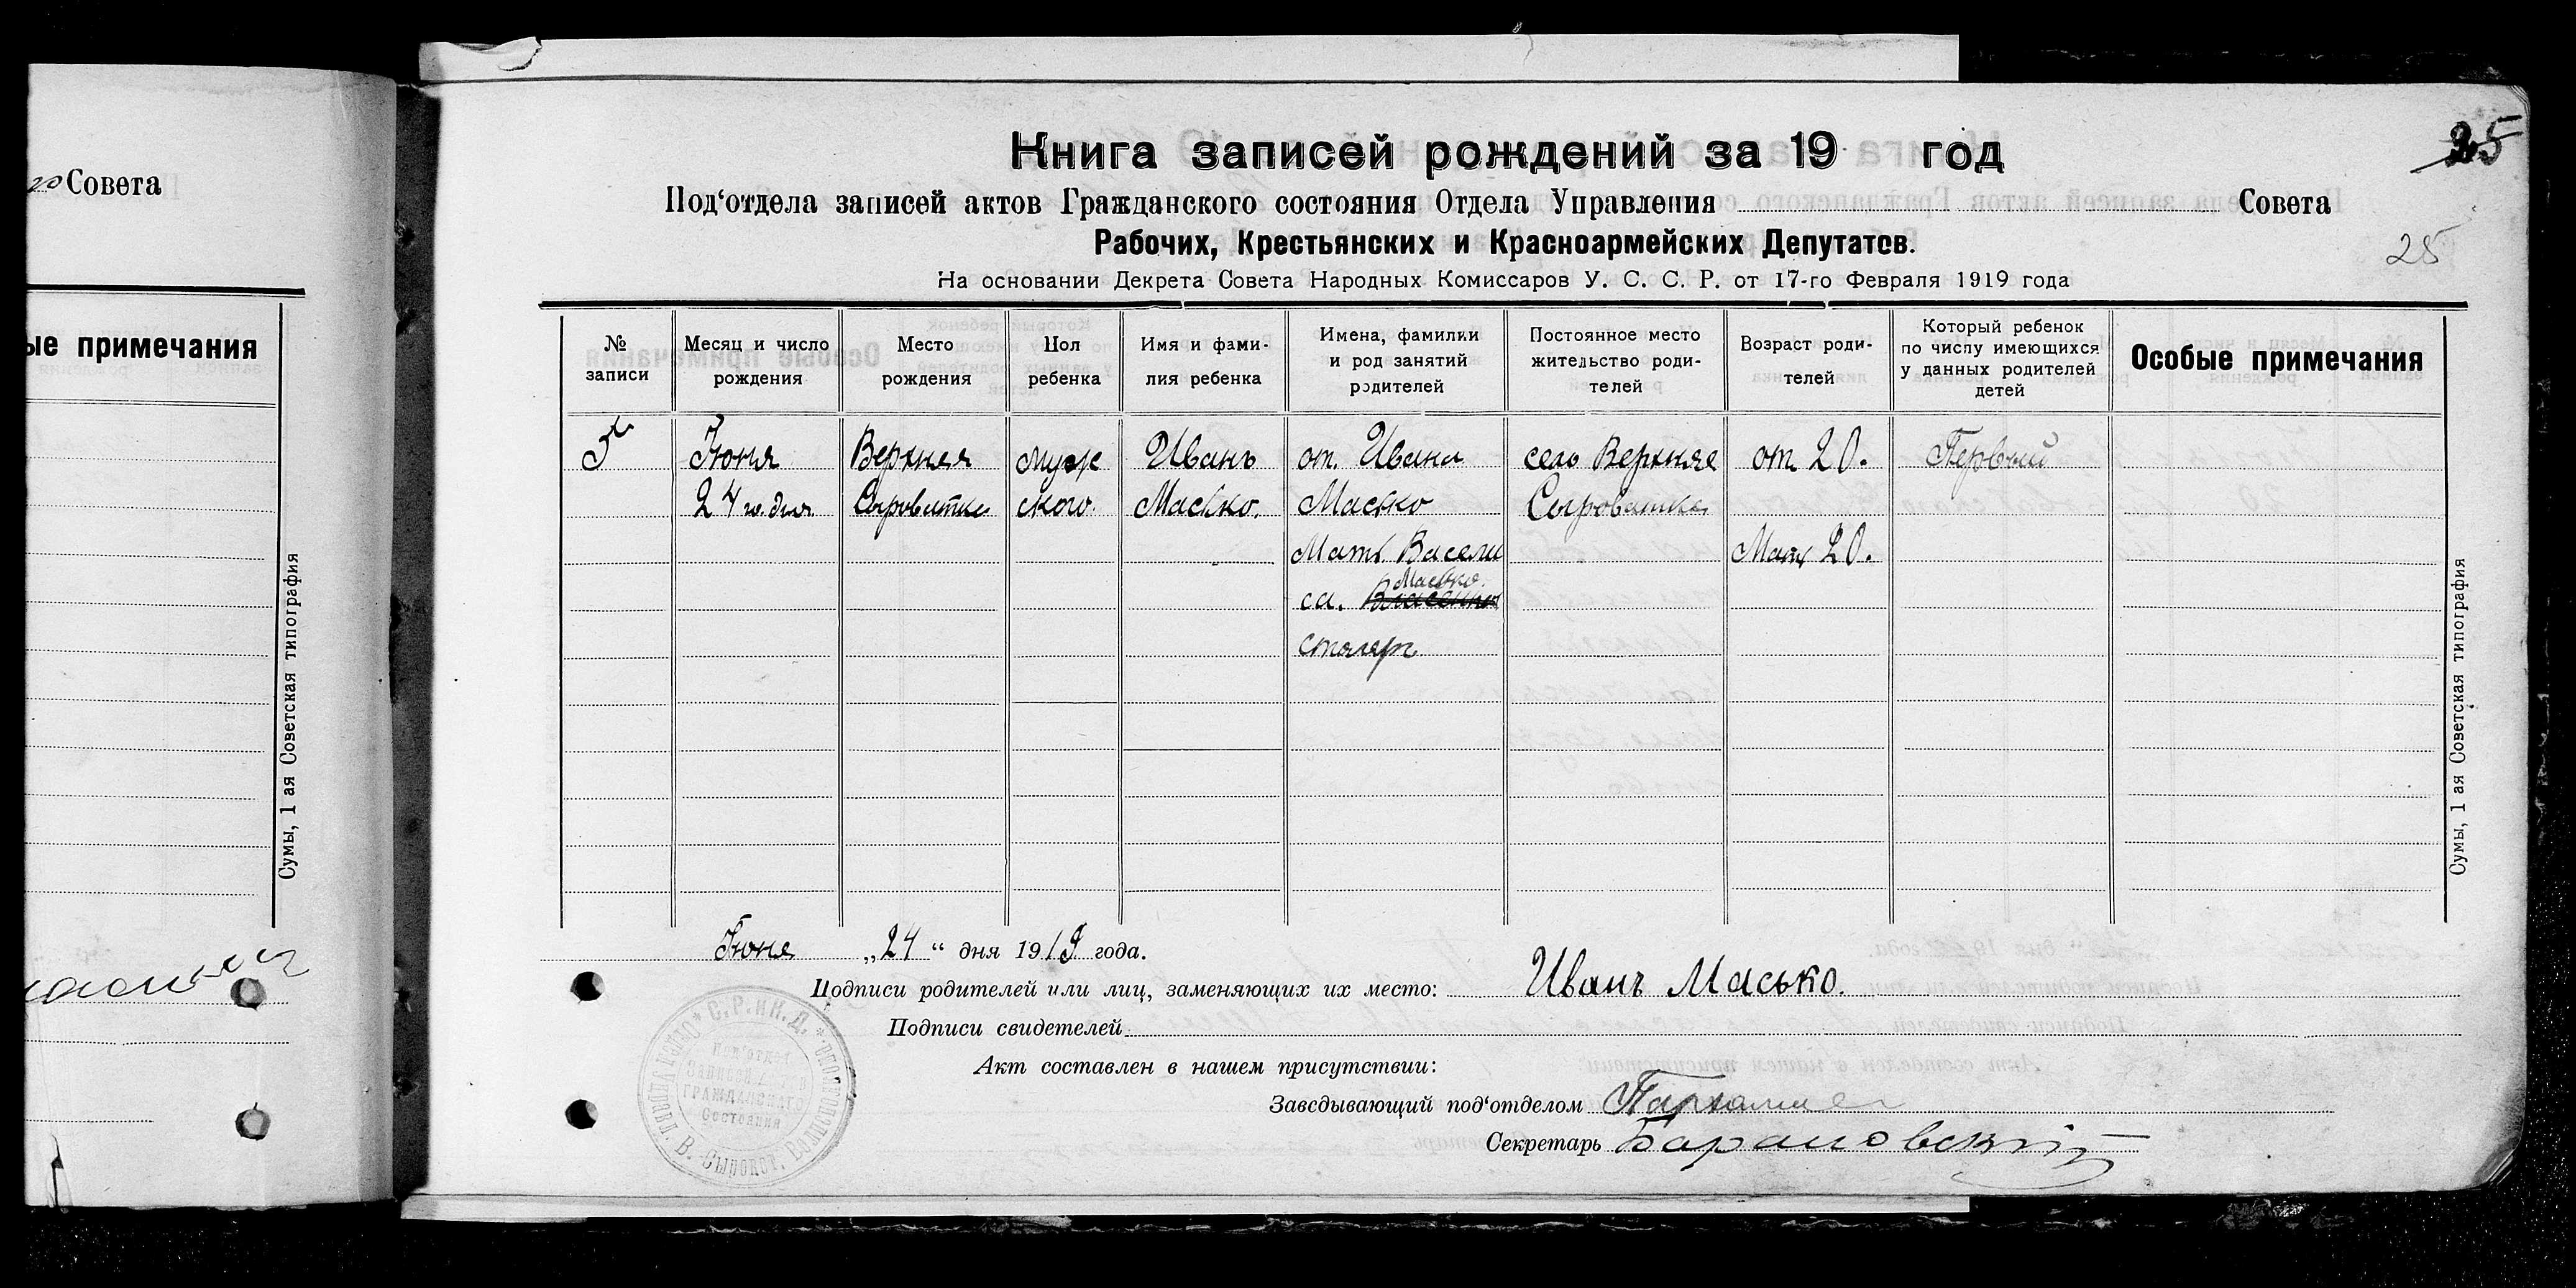 го Совета
ые примечания
Сумы, 1 ая Советская типография
25
Книга записей рождений за 19 год
Под‘отдела записей актов Гражданского состояния Отдела Управления Совета
Рабочих, Крестьянских и Красноармейских Депутатов.
25
На основании Декрета Совета Народных Комиссаров У. С. С. Р. от 17-го Февраля 1919 года
№ записи
Месяц и число рождения
Место рождения
Пол ребенка
Имя и фами-
лия ребенка
Имена, фамилии
и род занятий
родителей
Постоянное место
жительство роди-
телей
Возраст роди-
телей
Который ребенок
по числу имеющихся
у данных родителей
детей
Особые примечания
5
Июня
24 го. дня
Верхняя
Сыроватка
муж
ского.
Иванъ
Масько.
от. Ивана
Масько
Мать. Васели
са. Масько. Власенко
столярь
село Верхняе
Сыроватка
от 20.
Мать 20.
Первый
Сумы, 1 ая Советская типография
Июня „24“ дня 1919 года.
Подписи родителей или лиц, заменяющих их место: Иванъ Масько.
Подписи свидетелей
Акт составлен в нашем присутствии:
Заведывающий под‘отделом
Секретарь Барановский
С.Р.иК.Д.
Под‘отдел
Записей Актов
Гражданского
Состояния
В. Сыроват.